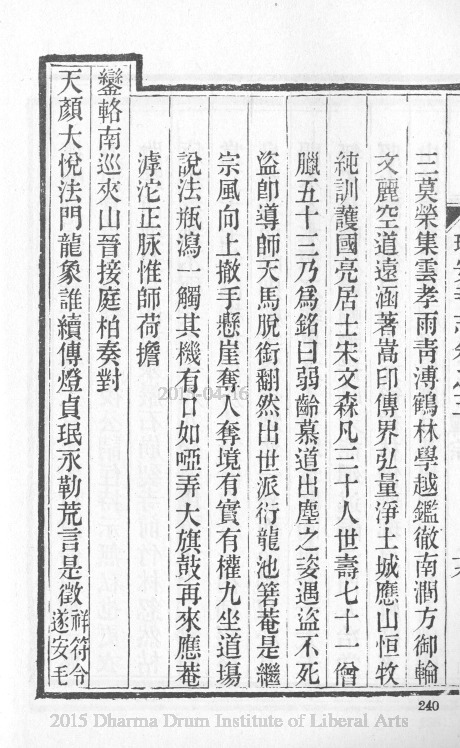 三莫榮集雲孝雨青溥鶴林學越鑑徹南澗方御輪
文麗空道遠涵著嵩印傳界弘量淨土城應山恒牧
純訓護國亮居士宋文森凡三十人世壽七十一僧
臘五十三乃爲銘曰弱齡慕道出塵之姿遇盜不死
盜卽導師天馬脫銜翻然出世派衍龍池箬菴是繼
宗風向上撤手懸崖奪人奪境有實有權九坐道塲
說法瓶瀉一觸其機有口如啞弄大旗鼓再來應菴
滹沱正脉惟師荷擔
鑾輅南巡夾山晉接庭柏奏對
天顏大悅法門龍象誰續傳燈貞珉永勒荒言是徵祥符令
遂安毛
240
2015-04-16
2015 Dharma Drum Institute of Liberal Arts